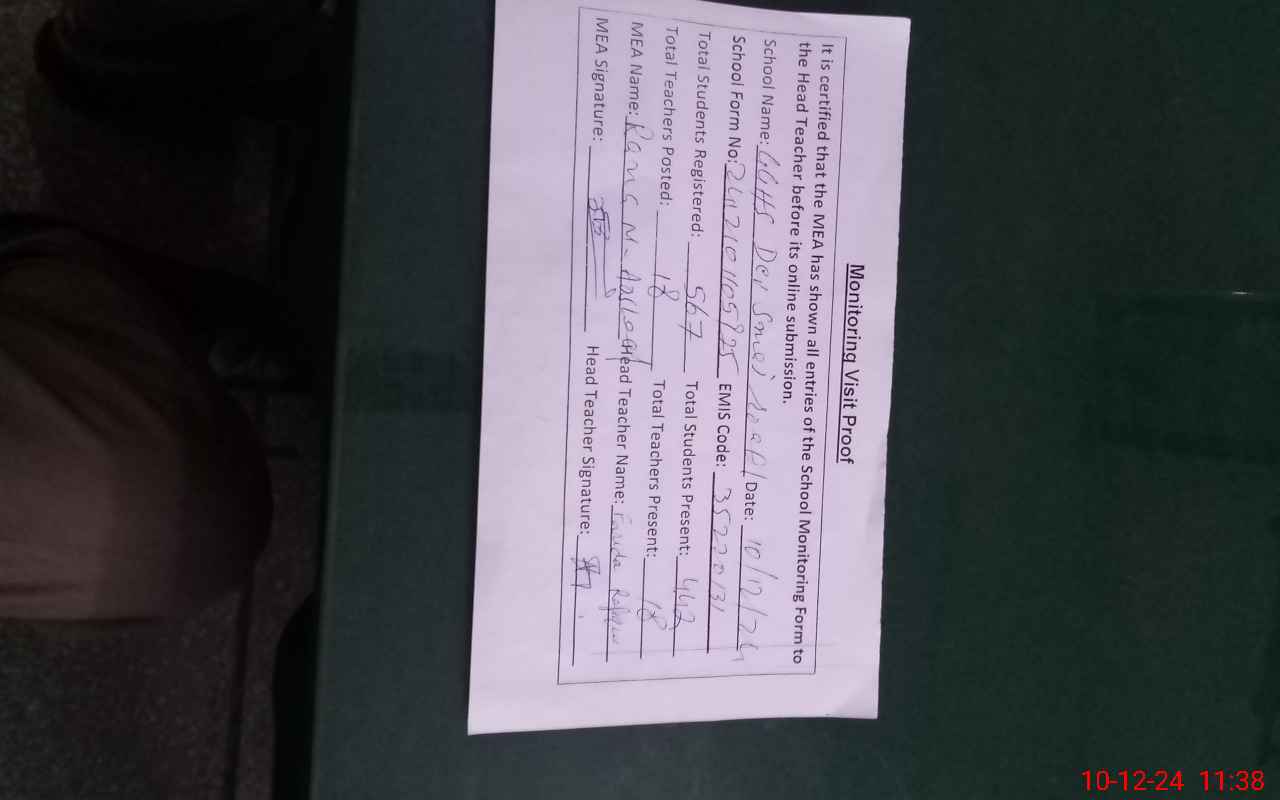 Monitoring Visit Proof
It is certified that the MEA has shown all entries of the School Monitoring Form to
the Head Teacher before its online submission.
School Name: GGHS Date: 10/12/24
School Form No: EMIS Code: 35220131
Total Students Registered: 567 Total Students Present: 442
Total Teachers Posted: 18 Total Teachers Present: 18
MEA Name: Rana M. Head Teacher Name: Farida
MEA Signature: Head Teacher Signature:
10-12-24 11:38